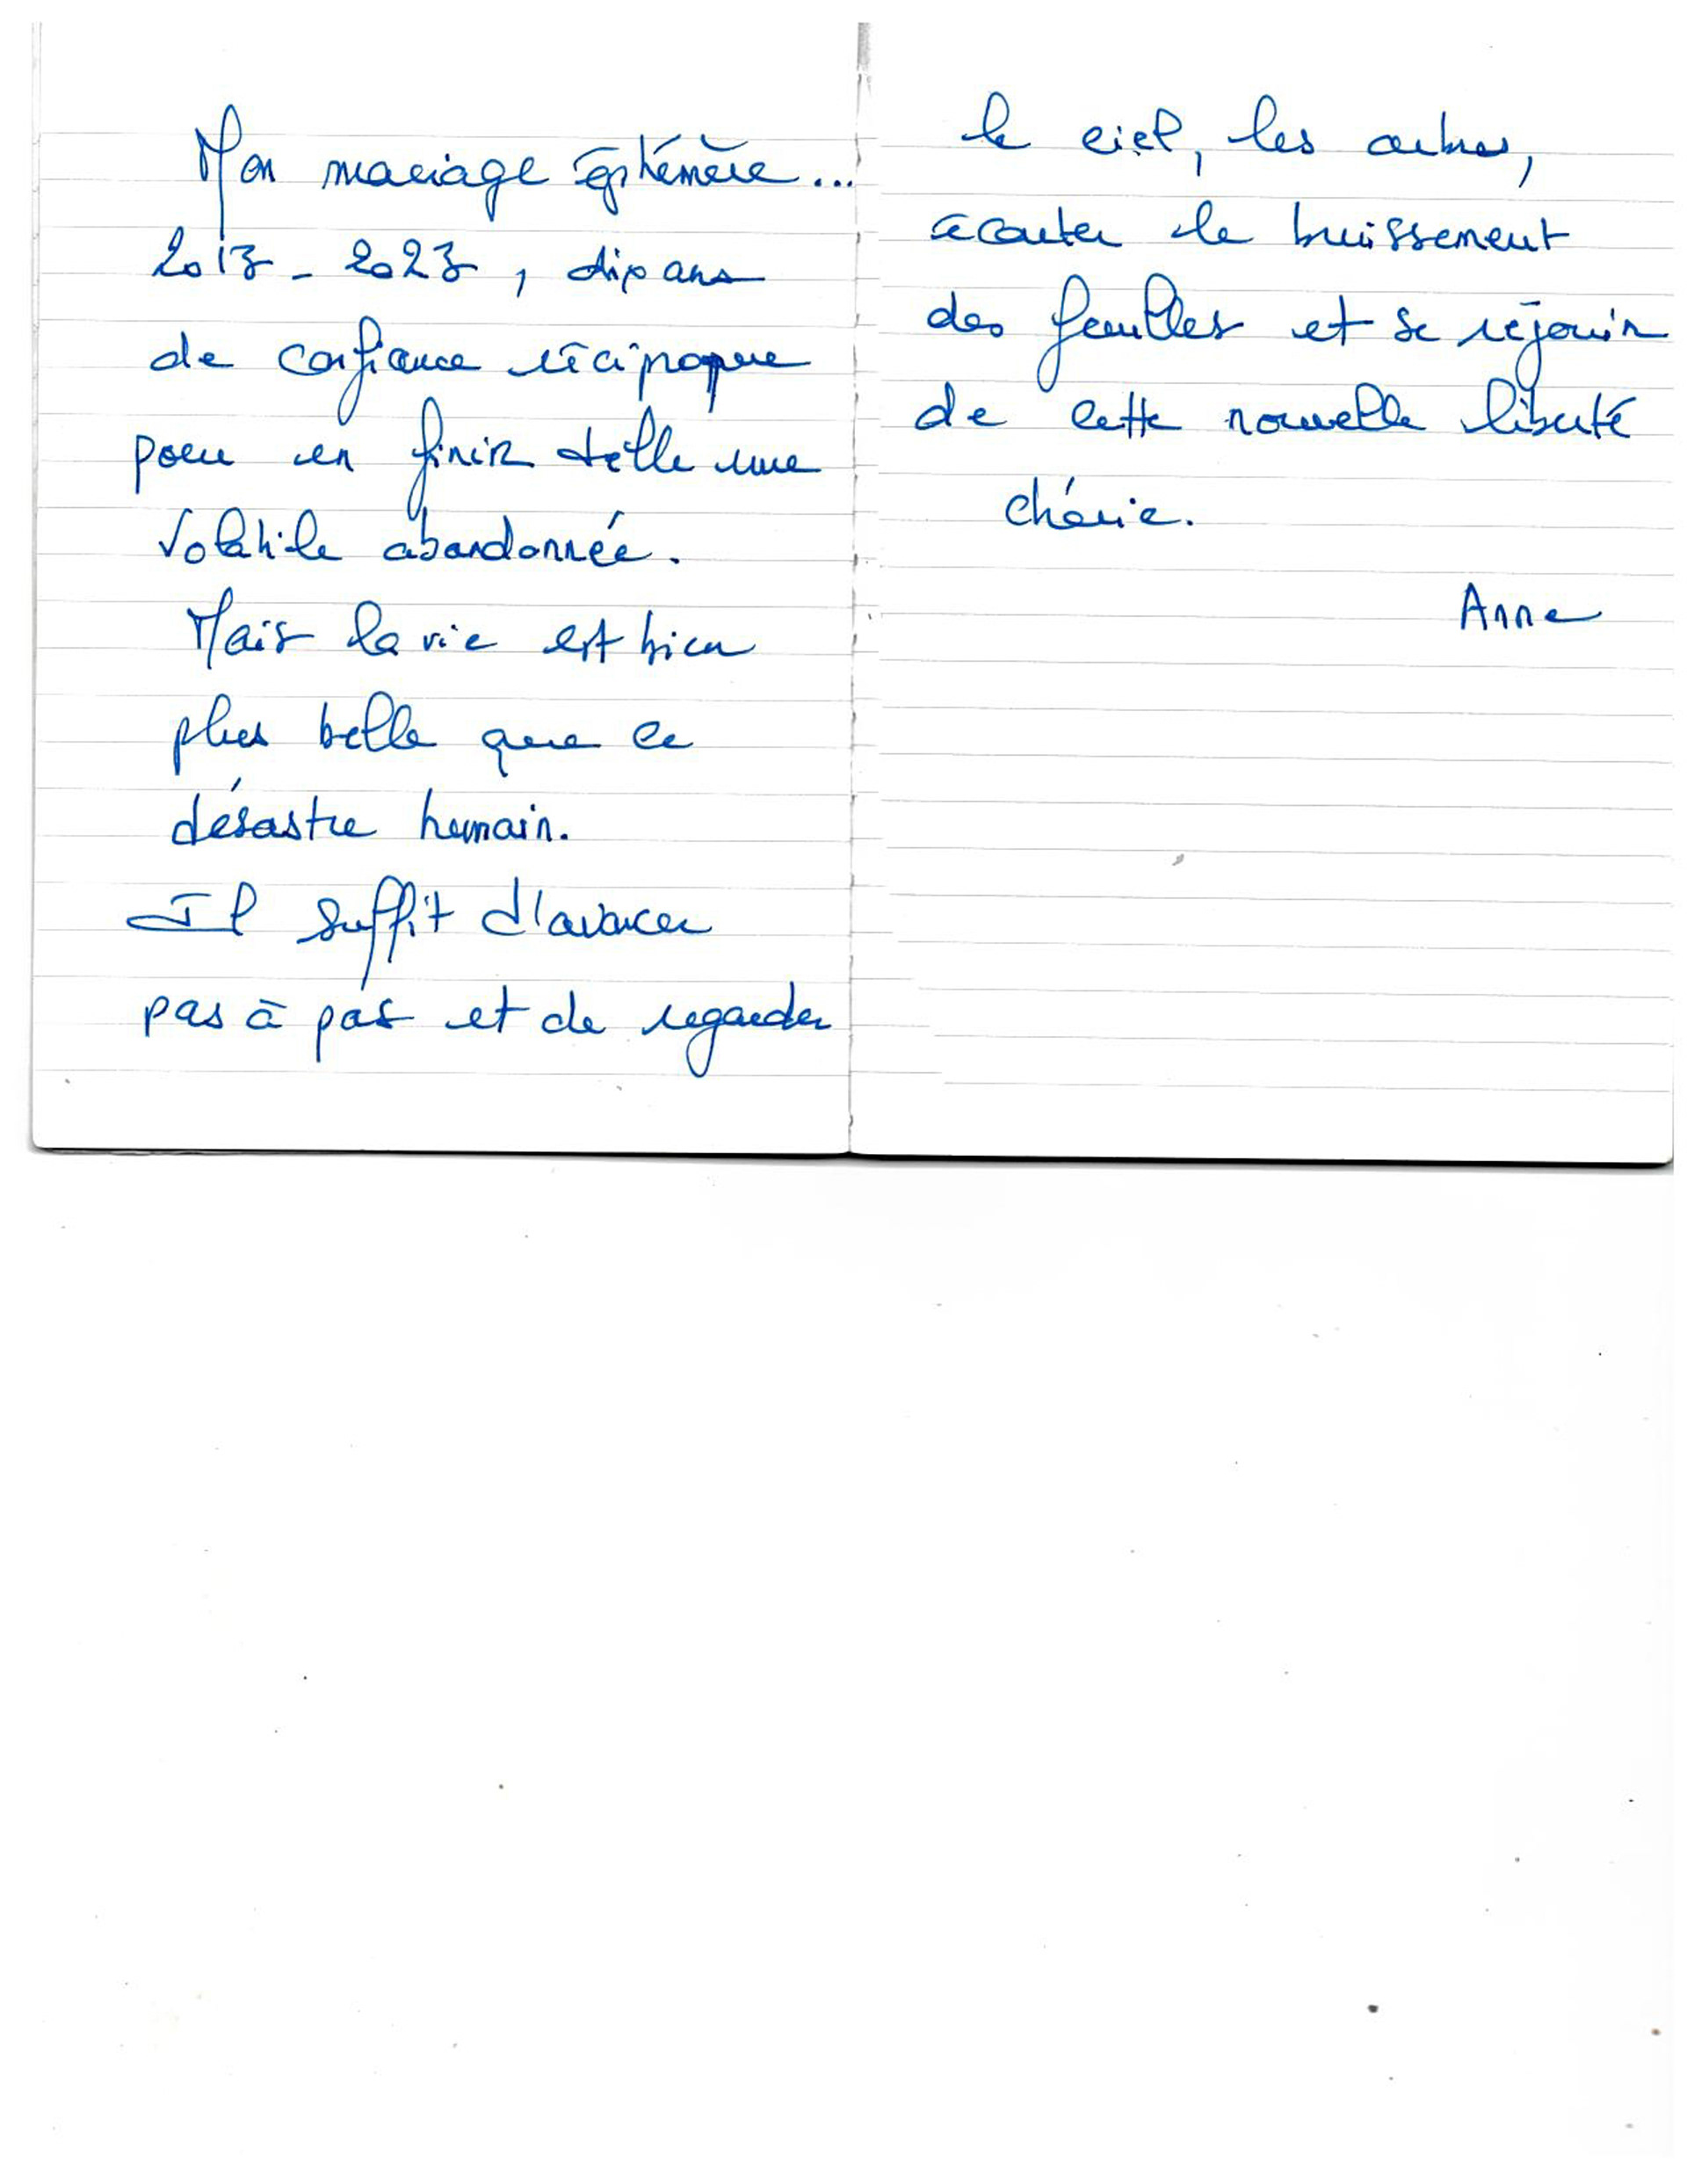 Mon mariage éphémère...
2013 - 2023, dix ans
de confiance réciproque
pour en finir telle une
volatile abandonnée.
Mais la vie est bien
plus belle que ce
désastre humain.
Il suffit d'avancer
pas à pas et de regarder
le ciel, les arbres,
écouter le bruissement
des feuilles et se réjouir
de cette nouvelle liberté
chérie.
Anne